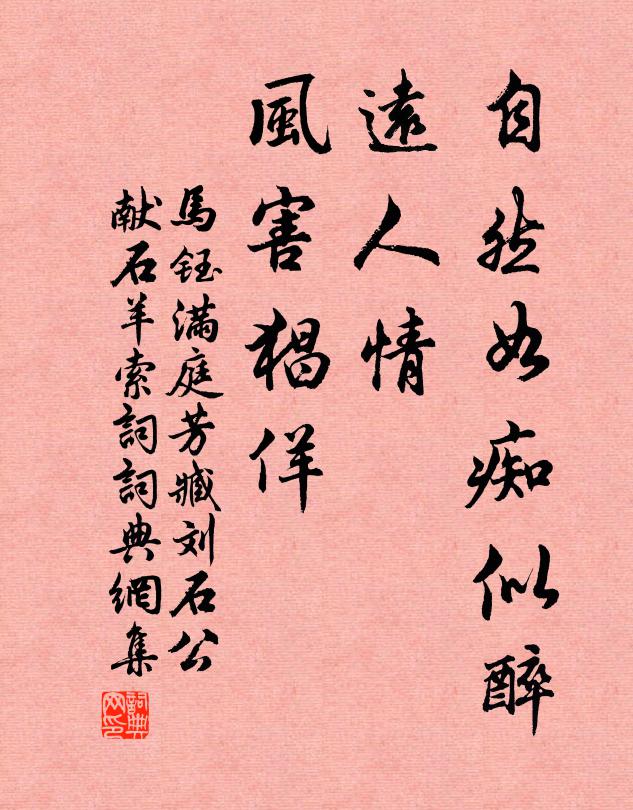 自然如痴似醉
遠人情
風害猖佯
馬鈺满庭芳臧刘石公
献石羊索詞詞典網集
詞典網印